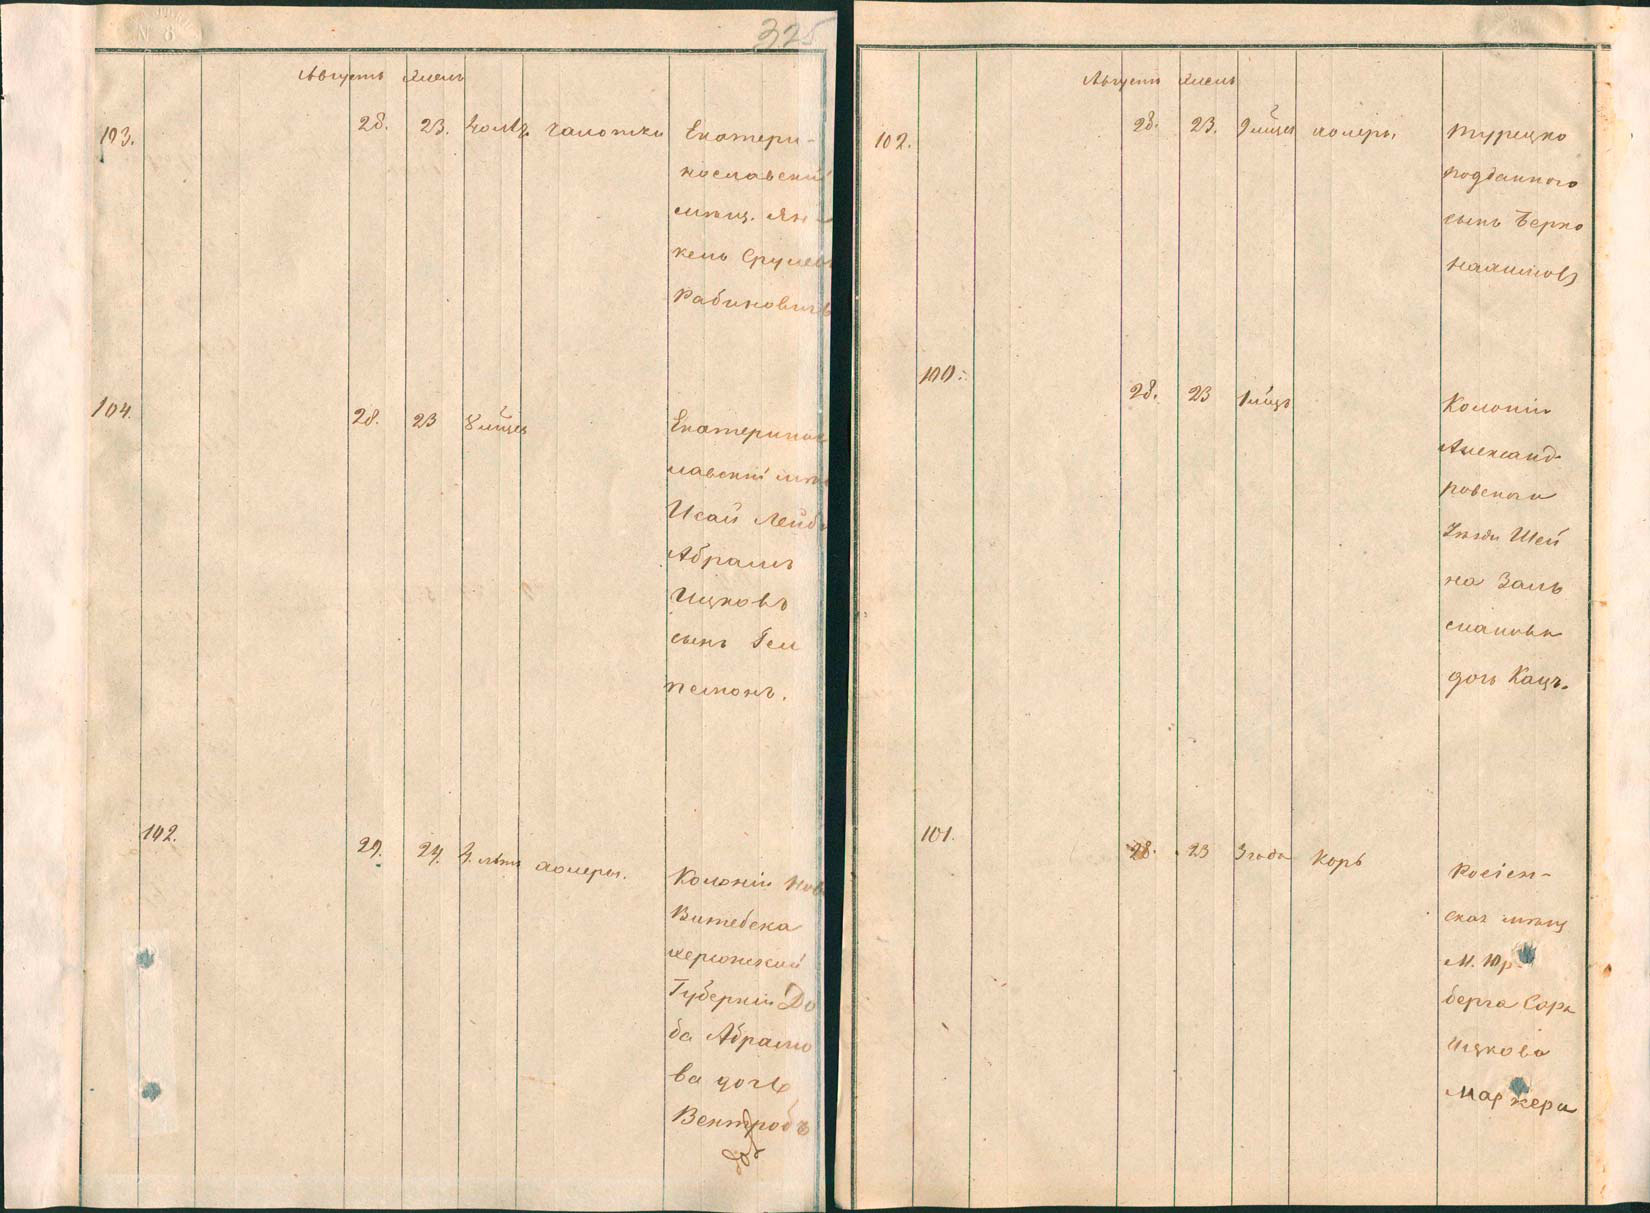 325
Августъ Элелъ
103.
28. 23. чахотки
Екатери-
нославскій
мѣщ. Ян-
кель Срулевъ
Рабиновичъ
104.
28. 23 8 мѣцев
Екатеринос
лавскій мѣщ
Исай Лейба
Абрамъ
Ицковъ
сынъ
102.
29. 24. лѣтъ холеры.
Колоніи Нов
Витебска
херсонской
Губерніи До
ба Абрамо
ва дочь
Вентробъ
Августъ Элелъ
102.
28. 23. 9 мѣцев холеры
турецко
подданного
сынъ Берко
100.
28. 23 1 мѣцъ
Колоніи
Александ-
ровскаго
Уѣзда Шей
на Заль
мановна
дочь Кацъ.
101.
28. 23 3 года Корь
Росіен-
ская мѣщ
М. Юр-
берга Сора
Ицкова